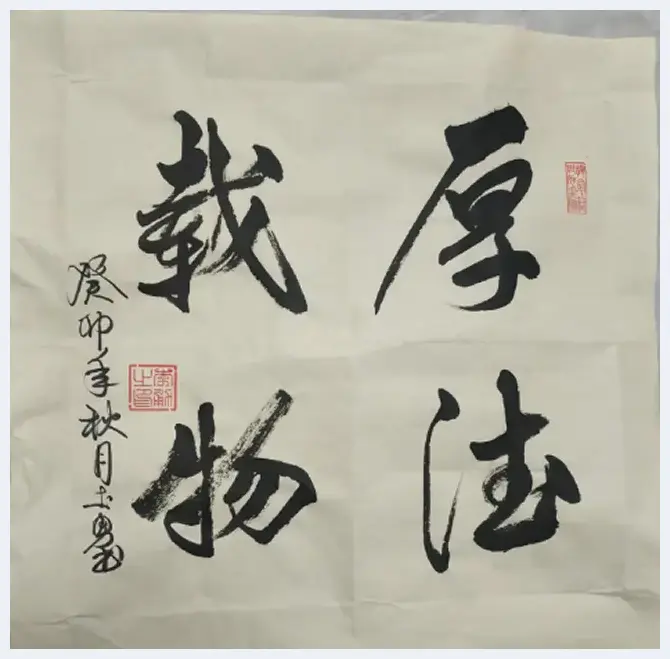 厚德
载物
癸卯年秋月